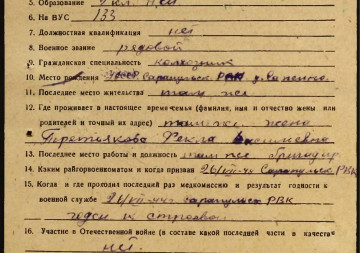 5. Образование 2 кл. НСШ
6. На ВУС 133
7. Должностная квалификация нет
8. Военное звание рядовой
9. Гражданская специальность колхозник
10. Место рождения УАССР Сарапульск. РВК
11. Последнее место жительства там же
12. Где проживает в настоящее время семья (фамилия, имя и отчество жены или
родителей и точный их адрес) там же, жена
Третьякова Фекла
13. Последнее место работы и должность там же бригадир
14. Каким райгорвоенкоматом и когда призван 26/VII-41 Сарапульск РВК
15. Когда и где проходил последний раз медкомиссию и результат годности к
военной службе 26/VII-41 Сарапульск РВК
годен к строевой
16. Участие в Отечественной войне (в составе какой последней части в качеств
нет.